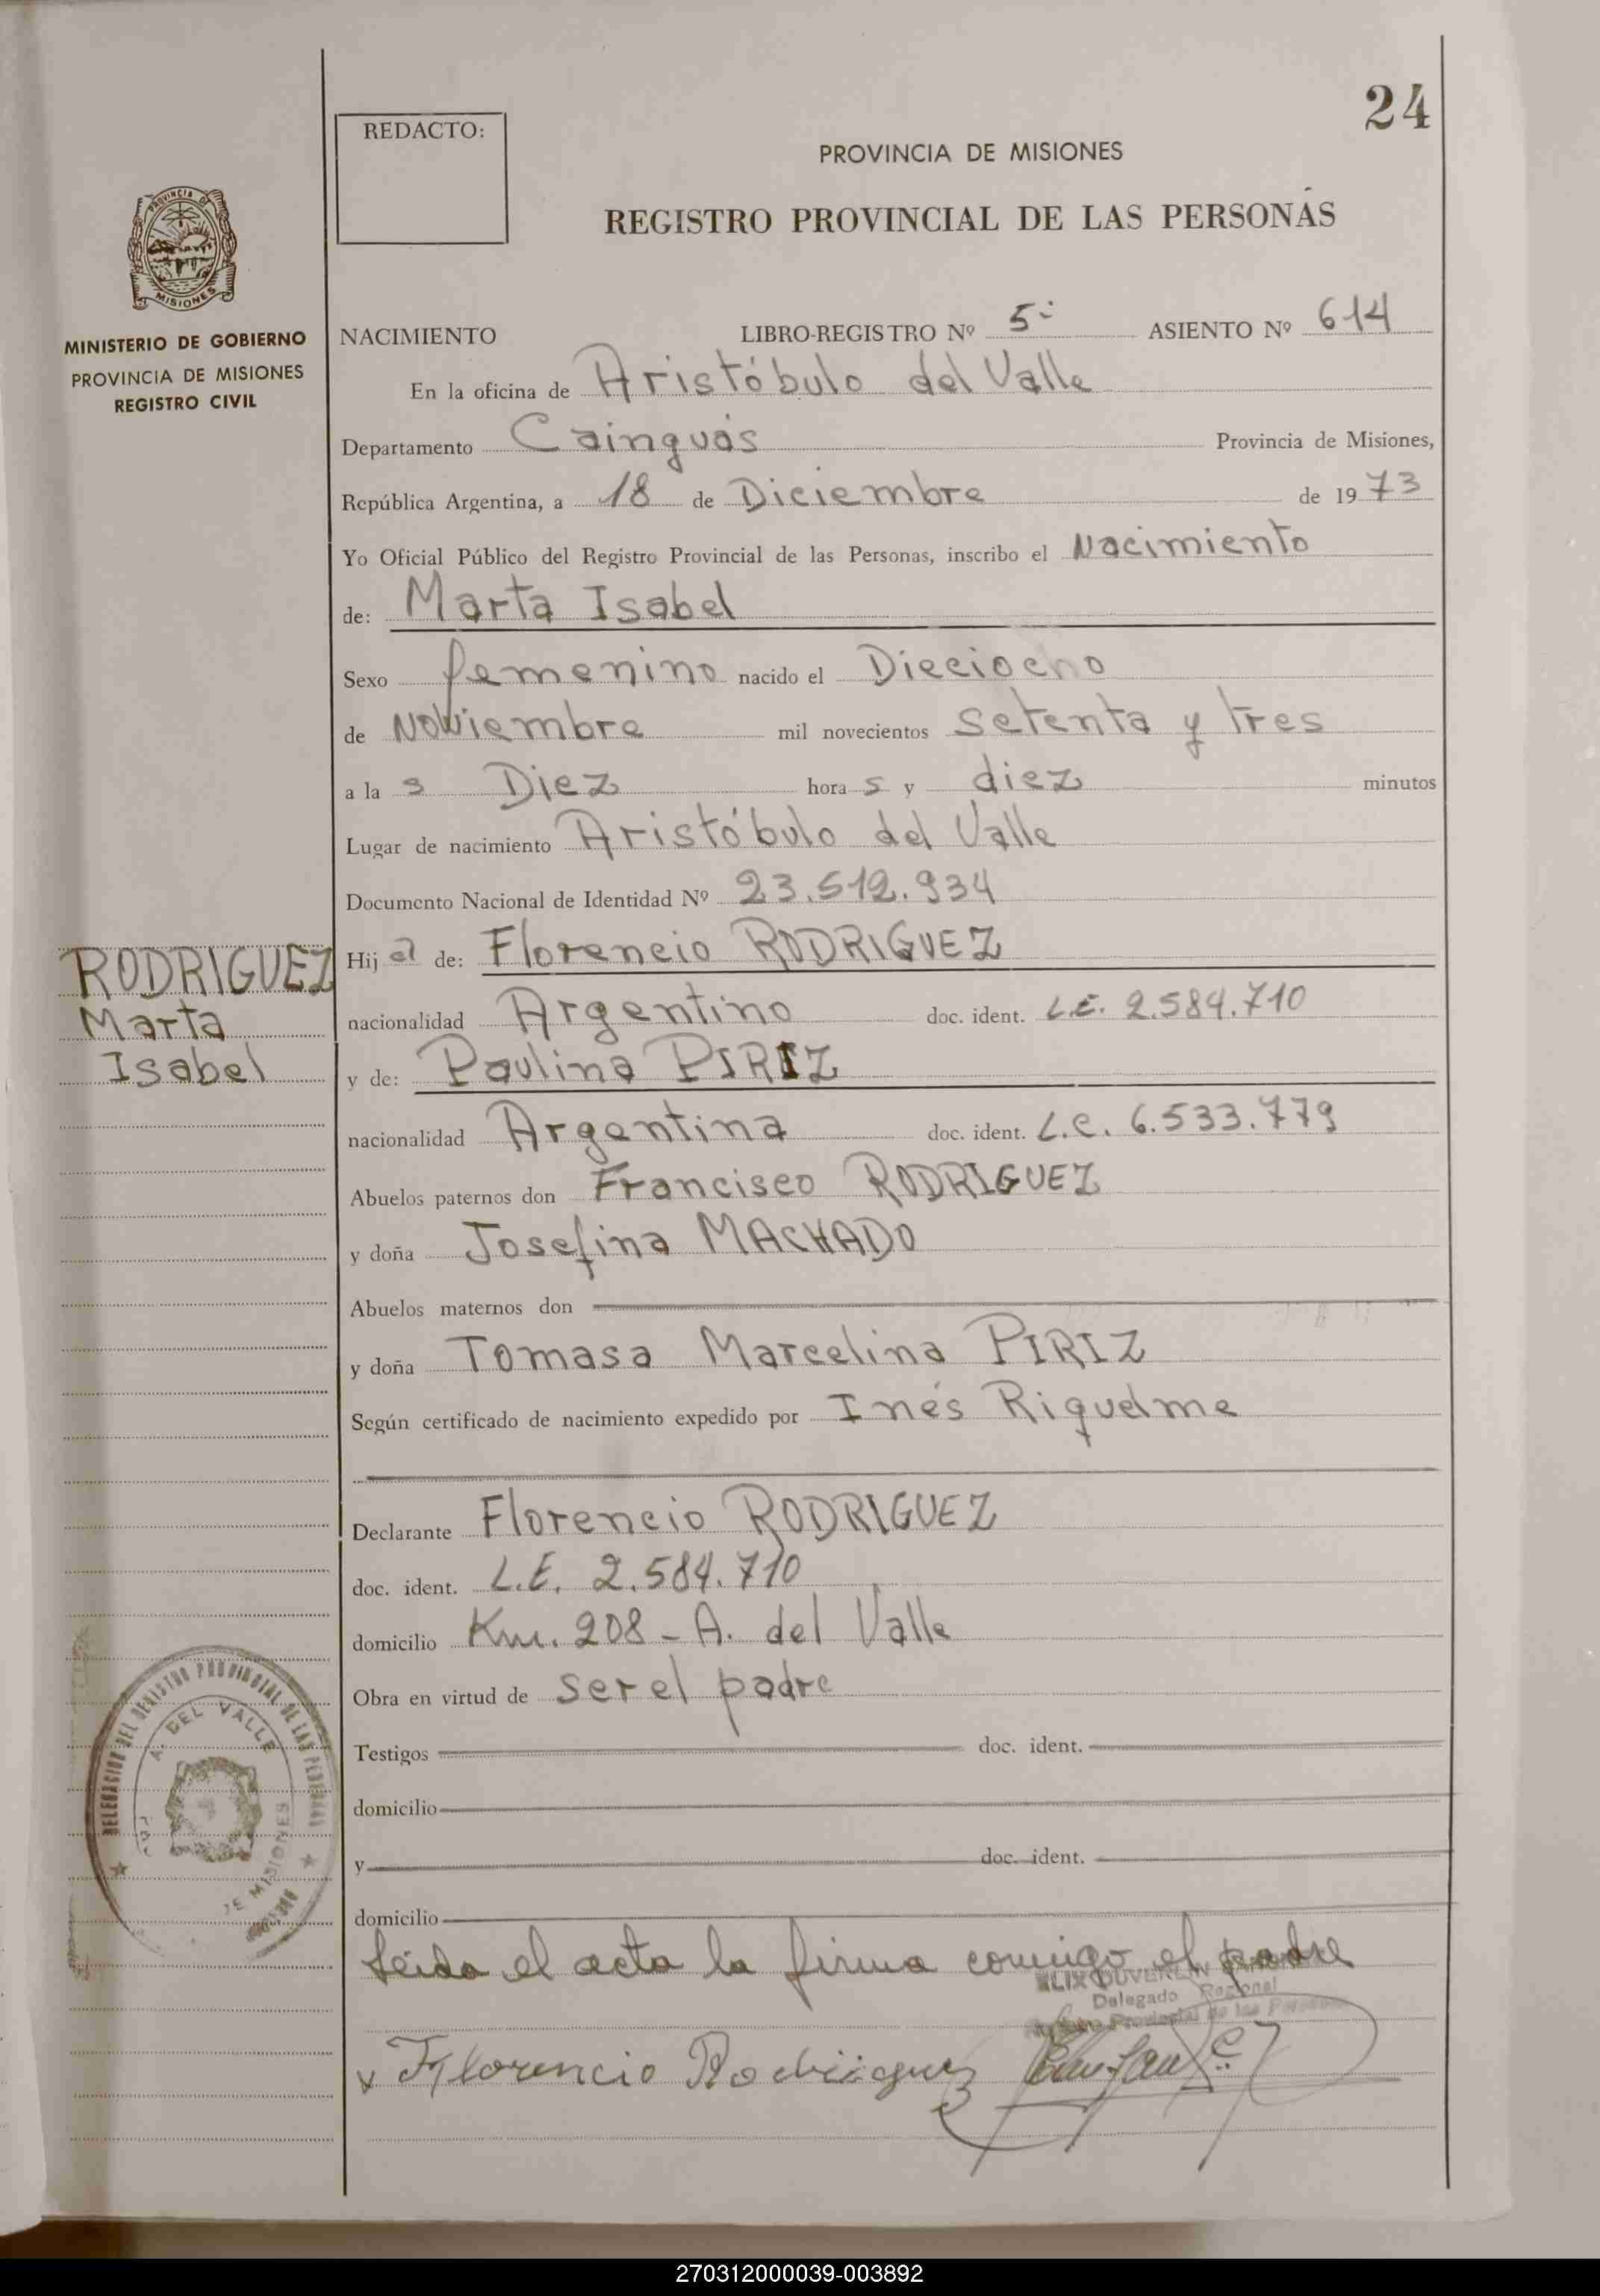 24
REDACTO:
PROVINCIA DE MISIONES
REGISTRO PROVINCIAL DE LAS PERSONAS
PROVINCIA DE
MISIONES
MINISTERIO DE GOBIERNO
PROVINCIA DE MISIONES
REGISTRO CIVIL
NACIMIENTO LIBRO-REGISTRO Nº 5 ASIENTO Nº 614
En la oficina de Aristóbulo del Valle
Departamento Cainguás Provincia de Misiones,
República Argentina, a 18 de Diciembre de 1973
Yo Oficial Público del Registro Provincial de las Personas, inscribo el Nacimiento
de: Marta Isabel
Sexo femenino nacido el Dieciocho
de Noviembre mil novecientos setenta y tres
a la s Diez hora s y diez minutos
Lugar de nacimiento Aristóbulo del Valle
Documento Nacional de Identidad Nº 23.512.934
RODRIGUEZ
Marta
Isabel
Hij a de: Florencio RODRIGUEZ
nacionalidad Argentino doc. ident. L.E. 2.584.710
y de: Paulina PIRIZ
nacionalidad Argentina doc. ident. L.C. 6.533.779
Abuelos paternos don Francisco RODRIGUEZ
y doña Josefina MACHADO
Abuelos maternos don
y doña Tomasa Marcelina PIRIZ
Según certificado de nacimiento expedido por Inés Riquelme
Declarante Florencio RODRIGUEZ
doc. ident. L.E. 2.584.710
domicilio Km. 208 - A. del Valle
Obra en virtud de ser el padre
Testigos doc. ident.
domicilio
y doc. ident.
domicilio
DELEGACION DEL REGISTRO PROVINCIAL DE LAS PERSONAS
A. DEL VALLE
DE MISIONES
Leida el acta la firma conmigo el padre
Delegado Regional
Registro Provincial de las Personas
x Florencio Rodriiguez
270312000039-003892